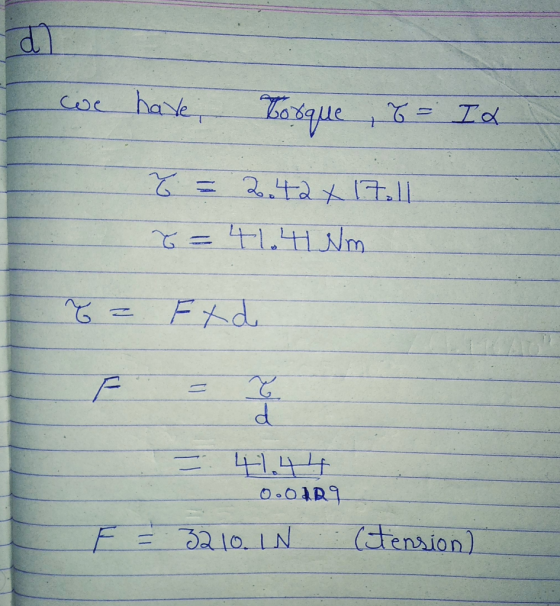 d)
we have, Torque, τ = Iα
τ = 2.42 × 17.11
τ = 41.41 Nm
τ = F×d
F = τ/d
= 41.44/0.0129
F = 3210.1N (tension)